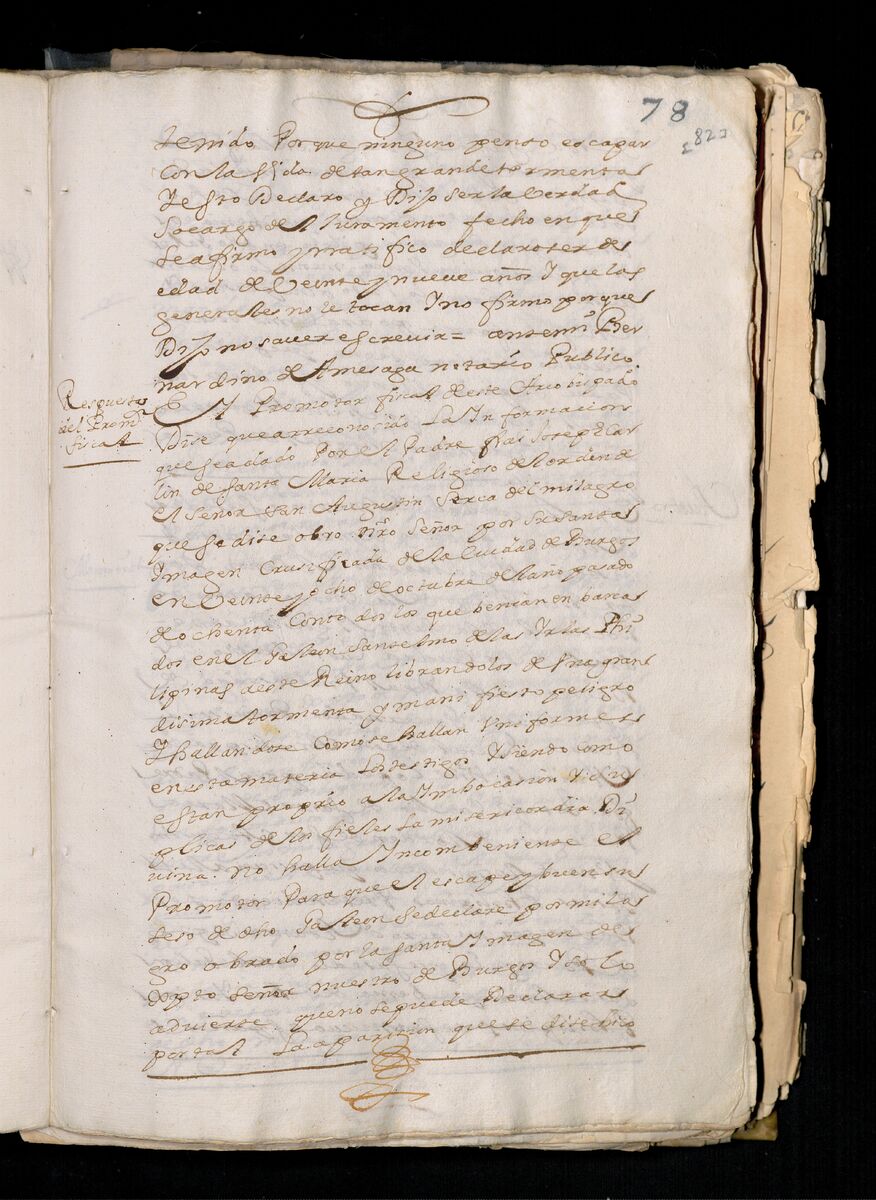 78
82
tenido Porque ninguno penso escapar
Con la vida de tan grande tormenta
Y esto Declaro y Dijo ser la Verdad
So cargo del Juramento fecho en que
Se afirmo y ratifico declaro ser de
edad de Veinte y nueve años Y que las
generales no le tocan Y no firmo porque
Dijo no saver escrevir = antemi Ber
nardino de Amesaga notario Publico
Respuesta
del Promr
fiscal
El Promotor fiscal de este Arzobispado
Dise que a rreconosido La Informacion
que se a dado Por el Padre frai Joseph
lin de Santa Maria Religioso del orden de
el Señor San Augustin Serca del milagro
que se dise obro nro Señor por su santa
Ymagen Crusificada de la Ciudad de Burgos
en Veinte y ocho de octubre del año pasado
de ochenta Con todos los que benian en barca
dos en el Galeon Santelmo de las Yslas Phi
lipinas deste Reino librandolos de Una gran
disima tormenta y manifiesto peligro
Y hallandose Como se hallan Uniformes
en esta materia los testigos Y siendo como
es tan proprio a la Imbocasion Y Su
plicas de los fieles La misericordia Di
uina. no halla Yncombeniente el
Promotor Para que el escape y buen su
seso de dho Galeon Se declare por mila
gro obrado por la santa Ymagen de
Xpto Señor nuestro de Burgos Y solo
advierte que no se puede Declarar
por tal La aparicion que se dise hiso